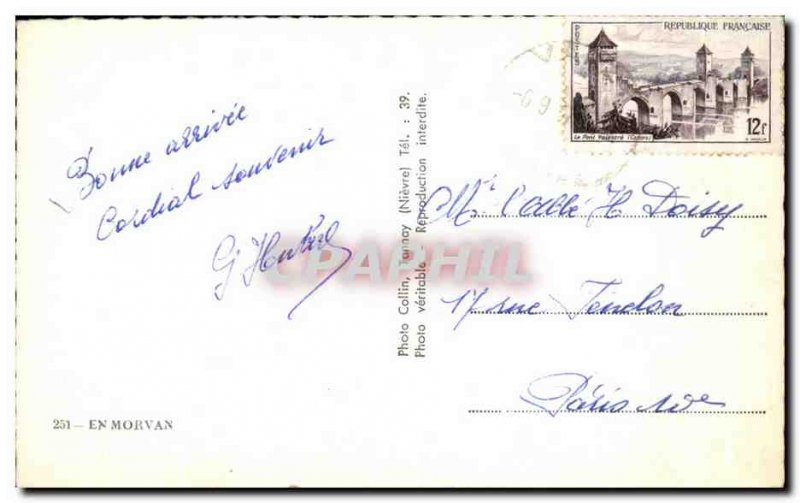 Bonne arrivée
Cordial souvenir
251 — EN MORVAN
Photo Collin, Tannay (Nièvre) Tél. : 39.
Photo véritable - Reproduction interdite.
CPAPHIL
REPUBLIQUE FRANÇAISE
POSTES
Le Pont Valentré (Cahors)
12F
Mr l'abbé H Doisy
17 rue
Paris